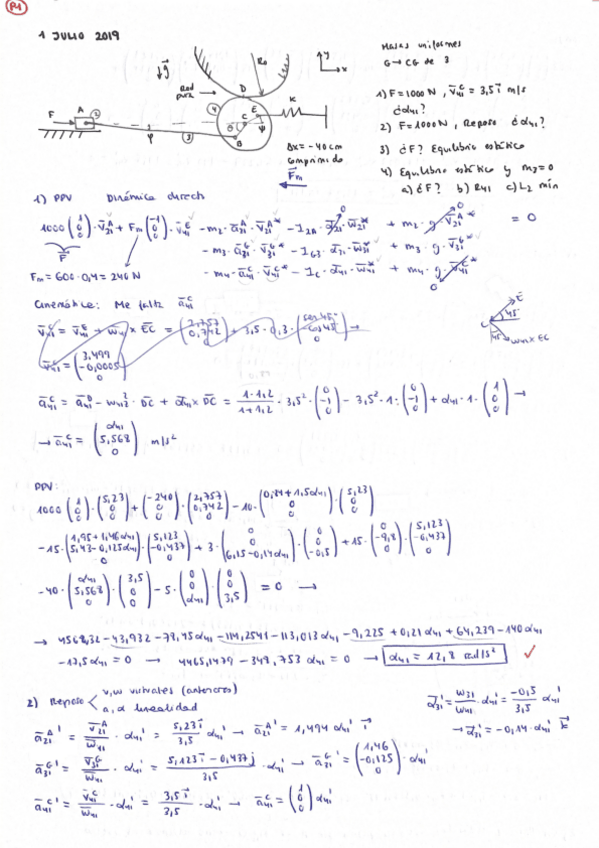 P1
1 JULIO 2019
Masas uniformes
G → CG de 3
1) F = 1000 N, v̄41^C = 3,5 ī m/s
¿α41?
2) F = 1000 N, Reposo ¿α41?
3) ¿F? Equilibrio estático
4) Equilibrio estático y m3 = 0
a) ¿F? b) R41 c) L2 mín
Δx = -40 cm
comprimido
F̄m
Rod pura
g R0 y x D E K C B A F
1) PPV Dinámica directa
1000 (1 0 0) · v̄21^A + Fm (-1 0 0) · v̄41^E - m2 · ā21^A · v̄21^A* - I2A · ᾱ21 · w̄21* + m2 · g · v̄21^A* = 0
- m3 · ā31^G · v̄31^G* - IG3 · ᾱ31 · w̄31* + m3 · g · v̄31^G*
- m4 · ā41^C · v̄41^C* - IC · ᾱ41 · w̄41* + m4 · g · v̄41^C*
F̄
Fm = 600 · 0,4 = 240 N
Cinemática: Me falta ā41^C
v̄41^E = v̄41^C + w̄41 × EC = (2,757 0,742) + 3,5 · 0,3 · (cos 45° -cos 45° 0) →
v̄41^E = (3,499 -0,0005 0)
45° w41 × EC
ā41^C = ā41^D - w41² · DC + ᾱ41 × DC = 1·1,2 / 1+1,2 · 3,5² · (0 -1 0) - 3,5² · 1 · (0 -1 0) + α41 · 1 · (1 0 0) →
→ ā41^C = (α41 5,568 0) m/s²
PPV:
1000 (1 0 0) · (5,23 0 0) + (-240 0 0) · (2,757 0,742 0) - 10 · (0,84 + 1,5α41 0 0) · (5,23 0 0)
-15 · (1,95 + 1,46α41 5,43 - 0,125α41 0) · (5,123 -0,437 0) + 3 · (0 0 6,15 - 0,14α41) · (0 0 -0,5) + 15 · (0 -9,8 0) · (5,123 -0,437 0)
-40 · (α41 5,568 0) · (3,5 0 0) - 5 · (0 0 α41) · (0 0 3,5) = 0 →
→ 4568,32 - 43,932 - 78,45α41 - 114,2541 - 113,013α41 - 9,225 + 0,21α41 + 64,239 - 140α41
-17,5α41 = 0 → 4465,1479 - 348,753α41 = 0 → α41 = 12,8 rad/s²
2) Reposo < v, w virtuales (anteriores)
a, α linealidad
ᾱ31' = w31/w41 · α41' = -0,5/3,5 α41'
→ ᾱ31' = -0,14 · α41' k̄
ā21^A' = v̄21^A/w̄41 · α41' = 5,23 ī/3,5 · α41' → ā21^A' = 1,494 α41' ī
ā31^G' = v̄31^G/w̄41 · α41' = 5,123 ī - 0,437 j/3,5 · α41' → ā31^G' = (1,46 -0,125 0) · α41'
ā41^C' = v̄41^C/w̄41 · α41' = 3,5 ī/3,5 · α41' → ā41^C' = (1 0 0) α41'